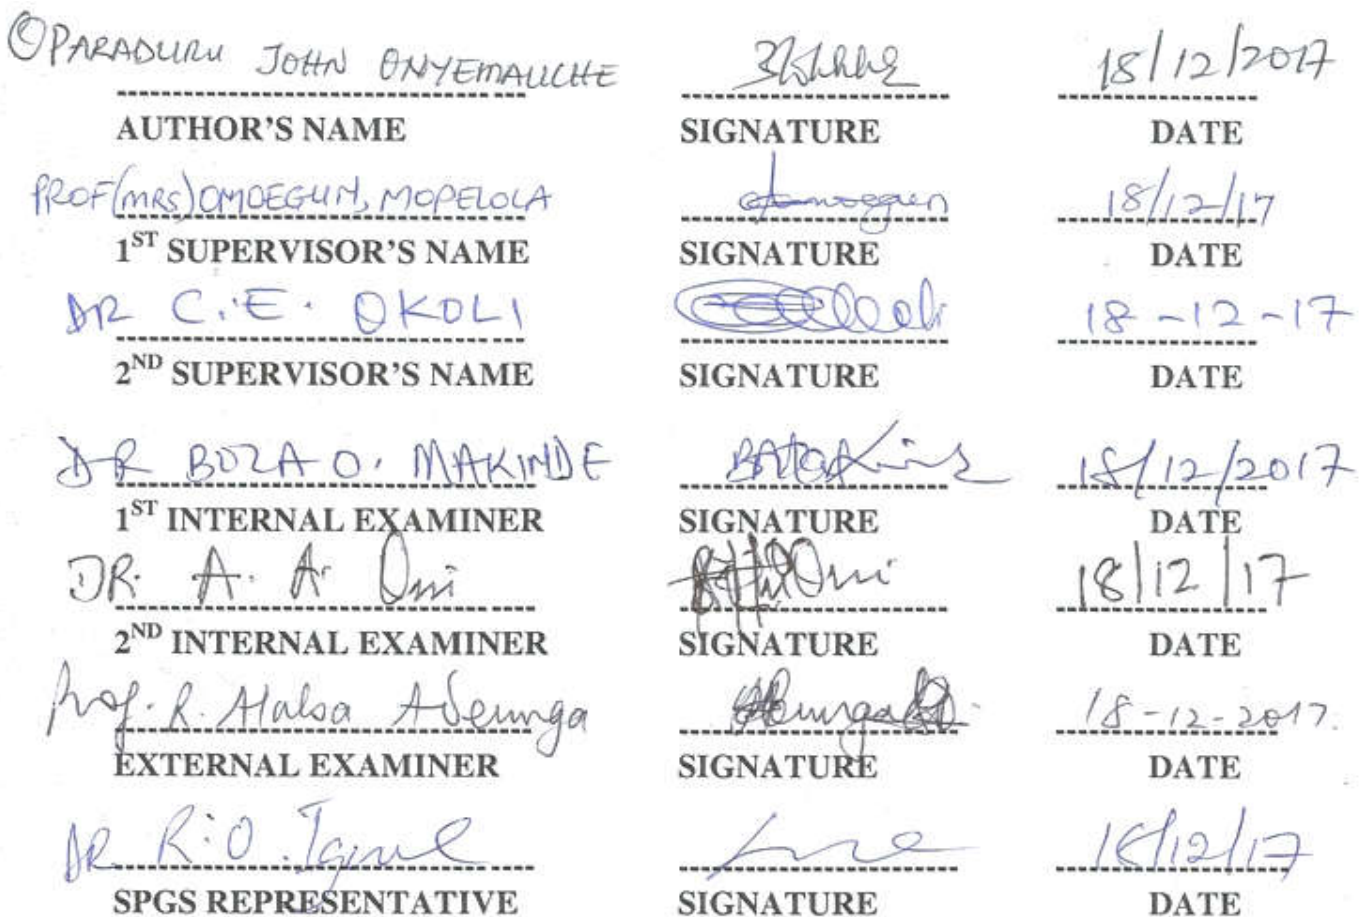 OPARADURU JOHN ONYEMAUCHE 18/12/2017
AUTHOR'S NAME SIGNATURE DATE
PROF(MRS) OMOEGUN, MOPELOLA 18/12/17
1ST SUPERVISOR'S NAME SIGNATURE DATE
DR C.E. OKOLI 18-12-17
2ND SUPERVISOR'S NAME SIGNATURE DATE
DR O. MAKINDE 18/12/2017
1ST INTERNAL EXAMINER SIGNATURE DATE
DR. A. A. Oni 18/12/17
2ND INTERNAL EXAMINER SIGNATURE DATE
Prof. R. Alaba Adenuga 18-12-2017.
EXTERNAL EXAMINER SIGNATURE DATE
DR R.O. 18/12/17
SPGS REPRESENTATIVE SIGNATURE DATE